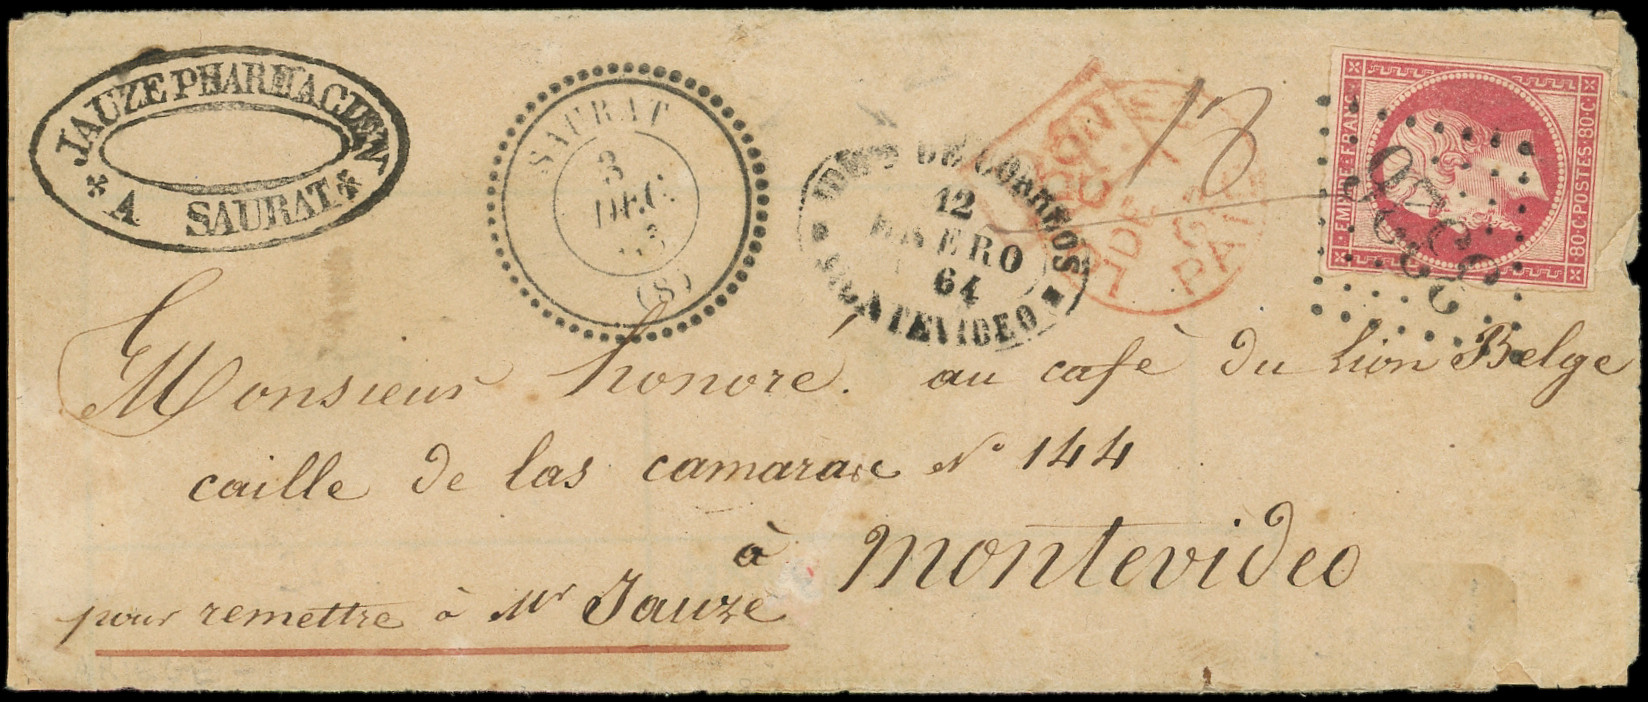 JAUZE PHARMACIEN
* A SAURAT *
SAURAT
3
DEC.
(8)
ADMON DE CORREOS
12
ENERO
64
MONTEVIDEO
LONDON
DE
PAID
13
EMPIRE FRANC
80·C·POSTES·80·C·
Monsieur honoré au café du lion Belge
caille de las camarace N° 144
à Montevideo
pour remettre à Mr Jauze